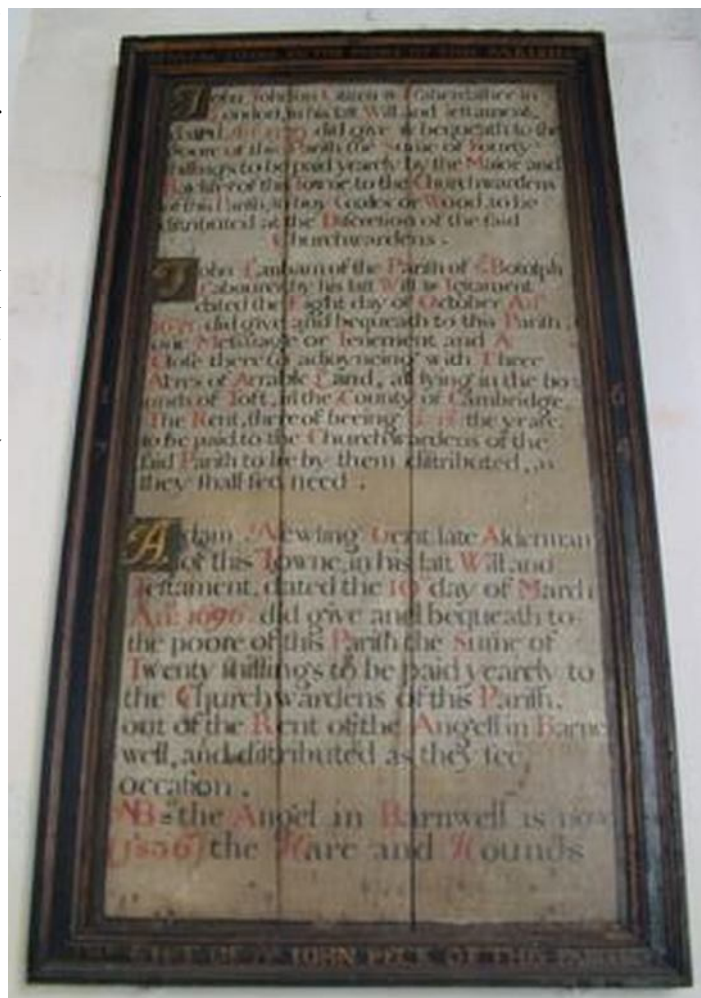 TO THE POORE OF THIS PARISH
John Johnson Citizen & Haberdasher in
London, in his last Will and Testament,
did give & bequeath to the
poore of this Parish the Sume of Fourty
shillings to be paid yearely by the Maior and
Bailifes of this Towne, to the Churchwardens
of this Parish, to buy Coales or Wood, to be
distributed at the Discretion of the said
Churchwardens.
John Lanham of the Parish of St. Botolph
Labourer, by his last Will & Testament
dated the Eight day of October An.o
did give and bequeath to this Parish,
one Messuage or Tenement and A
Close thereto adjoyneing with Three
Acres of Arrable Land, all lying in the bo
unds of Toft, in the County of Cambridge
The Rent, thereof beeing the yeare
to be paid to the Churchwardens of the
said Parish to be by them distributed, as
they shall see need.
1 6
7
Adam Newling Gent. late Alderman
of this Towne, in his last Will and
Testament, dated the 10 day of March
An.o 1696 did give and bequeath to
the poore of this Parish the Sume of
Twenty shillings to be paid yearely to
the Churchwardens of this Parish.
out of the Rent of the Angell in Barne
well, and distributed as they see
occasion.
NB = the Angel in Barnwell is now
(1836) the Hare and Hounds
GIFT OF JOHN PECK OF THIS PARISH